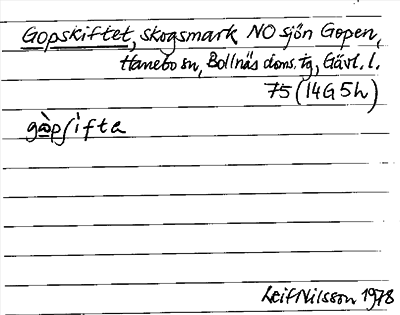 Gopskiftet, skogsmark NO sjön Gopen,
Hanebo sn, Bollnäs doms. tg, Gävl. l.
75 (14G 5h)
gɷ̀pʃìfta
Leif Nilsson 1978